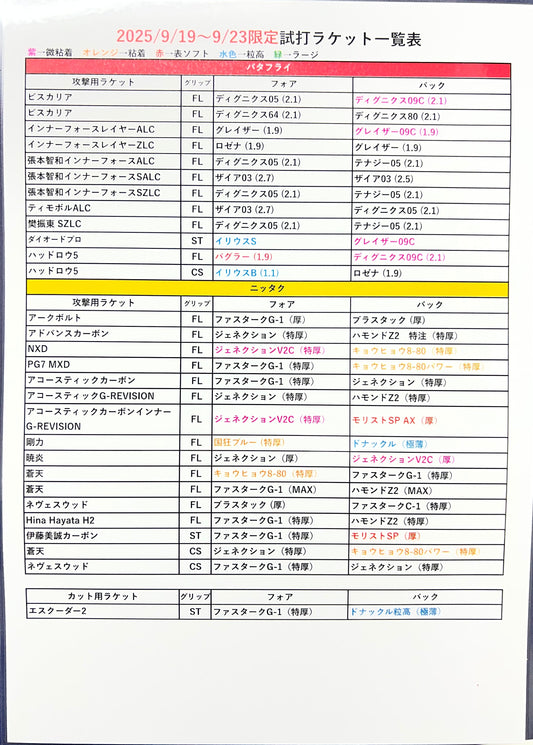 2025/9/19～9/23限定試打ラケット一覧表
紫→微粘着 オレンジ→粘着 赤→表ソフト 水色→粒高 緑→ラージ
バタフライ
攻撃用ラケット グリップ フォア バック
ビスカリア FL ディグニクス05 (2.1) ディグニクス09C (2.1)
ビスカリア FL ディグニクス64 (2.1) ディグニクス80 (2.1)
インナーフォースレイヤーALC FL グレイザー (1.9) グレイザー09C (1.9)
インナーフォースレイヤーZLC FL ロゼナ (1.9) グレイザー (1.9)
張本智和インナーフォースALC FL ディグニクス05 (2.1) テナジー05 (2.1)
張本智和インナーフォースSALC FL ザイア03 (2.7) ザイア03 (2.5)
張本智和インナーフォースSZLC FL ディグニクス05 (2.1) テナジー05 (2.1)
ティモボルALC FL ザイア03 (2.7) ディグニクス05 (2.1)
樊振東 SZLC FL ディグニクス05 (2.1) テナジー05 (2.1)
ダイオードプロ ST イリウスS グレイザー09C
ハッドロウ5 FL バグラー (1.9) ディグニクス09C (2.1)
ハッドロウ5 CS イリウスB (1.1) ロゼナ (1.9)
ニッタク
攻撃用ラケット グリップ フォア バック
アークボルト FL ファスタークG-1（厚） プラスタック (厚)
アドバンスカーボン FL ジェネクション（特厚） ハモンドZ2 特注（特厚）
NXD FL ジェネクションV2C（特厚） キョウヒョウ8-80（特厚）
PG7 MXD FL ファスタークG-1（特厚） キョウヒョウ8-80パワー（特厚）
アコースティックカーボン FL ファスタークG-1（特厚） ジェネクション（特厚）
アコースティックG-REVISION FL ジェネクション（特厚） ハモンドZ2（特厚）
アコースティックカーボンインナー
G-REVISION FL ジェネクションV2C（特厚） モリストSP AX（厚）
剛力 FL 国狂ブルー (特厚) ドナックル（極薄）
暁炎 FL ジェネクション（厚） ジェネクションV2C（厚）
蒼天 FL キョウヒョウ8-80（特厚） ファスタークG-1（特厚）
蒼天 FL ファスタークG-1（MAX） ハモンドZ2（MAX）
ネヴェスウッド FL プラスタック (厚) ファスタークC-1（特厚）
Hina Hayata H2 FL ファスタークG-1（特厚） ハモンドZ2（特厚）
伊藤美誠カーボン ST ファスタークG-1（特厚） モリストSP（厚）
蒼天 CS ジェネクション（特厚） キョウヒョウ8-80パワー（特厚）
ネヴェスウッド CS ファスタークG-1（特厚） ジェネクション（特厚）
カット用ラケット グリップ フォア バック
エスクーダー2 ST ファスタークG-1（特厚） ドナックル粒高（極薄）